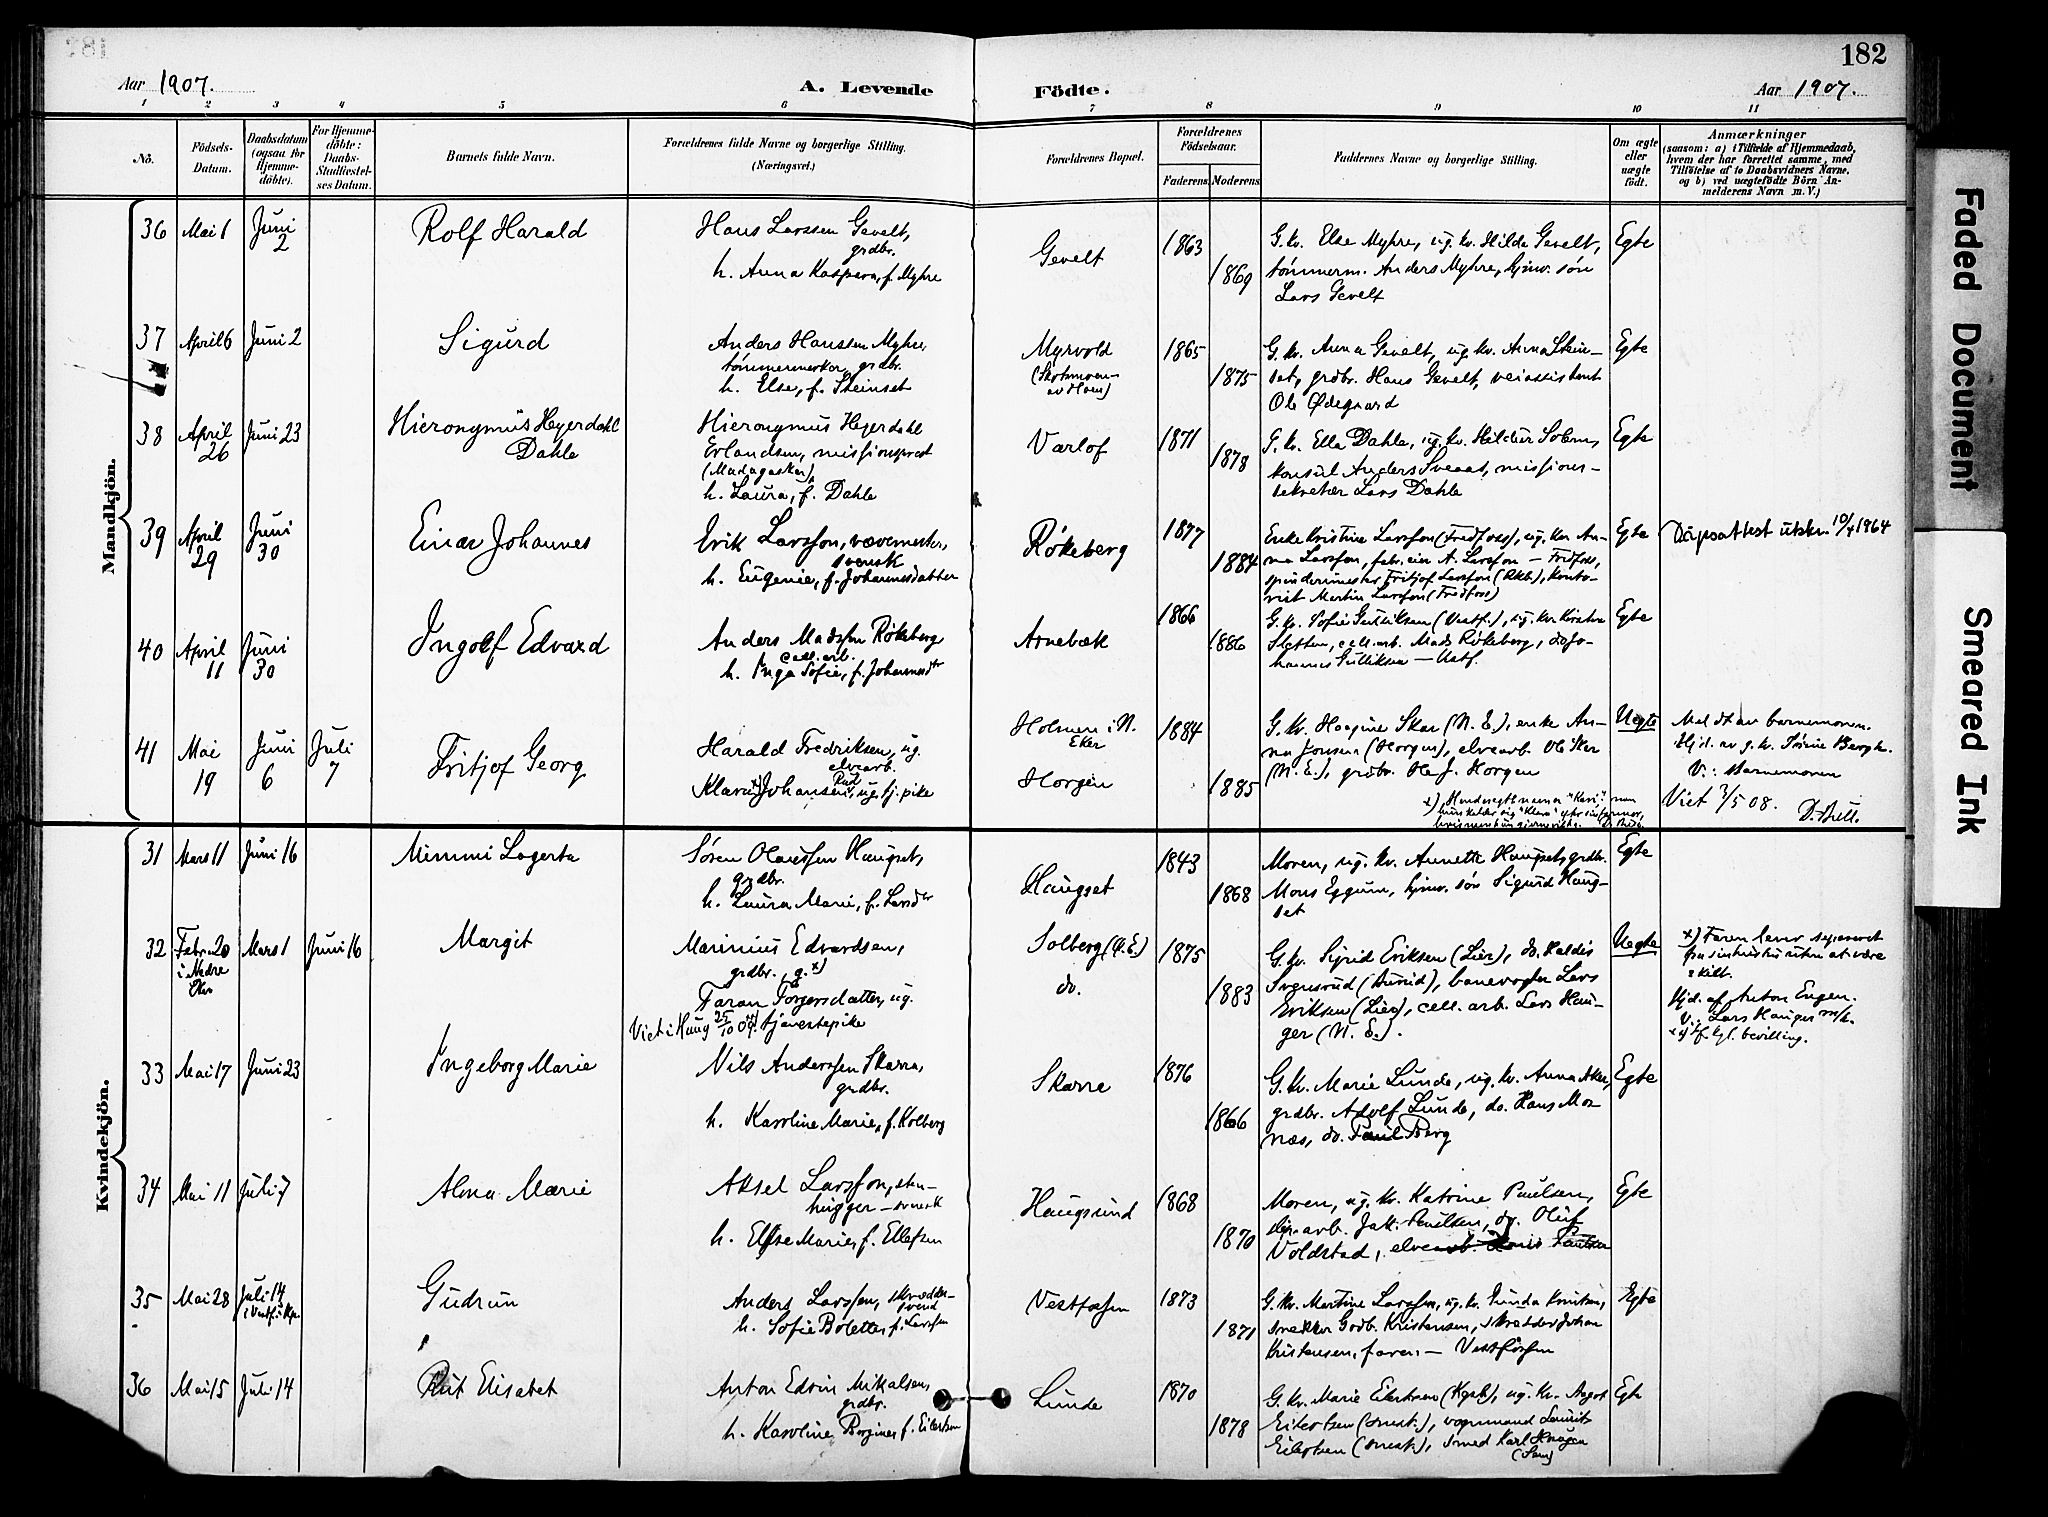 182
Aar 1907. A. Levende Födte. Aar 1907.
1 2 3 4 5 6 7 8 9 10 11
No.
Födsels-
Datum.
Daabsdatum
(ogsaa for
Hjemme-
döbte).
For Hjemme-
döbte:
Daabs-
Stadfæstel-
ses Datum.
Barnets fulde Navn.
Forældrenes fulde Navne og borgerlige Stilling.
(Næringsvei.)
Forældrenes Bopæl.
Forældrenes
Födselsaar.
Faderens. Moderens.
Faddernes Navne og borgerlige Stilling.
Om ægte
eller
uægte
födt.
Anmærkninger
(saasom: a) i Tilfælde af Hjemmedaab,
hvem der har forrettet samme, med
Tilföielse af to Daabsvidners Navne,
og b) ved uægtefödte Börn An-
melderens Navn m. V.)
Mandkjön.
36 Mai 1 Juni 2
Rolf Harald
Hans Larssen Gevelt,
grdbr.
h. Anna Kaspara, f. Myhre
Gevelt
1863
1869
G. kv. Else Myhre, ug. kv. Hilda Gevelt,
tømmerm. Anders Myhre, hjmv. søn
Lars Gevelt
Egte
37 April 6 Juni 2
Sigurd
Anders Hanssen Myhre,
tømmermerker, grdbr.
h. Else, f. Steinset
Myrvold
1865
1875
G. kv. Anna Gevelt, ug. kv. Anna Stein-
set, grdbr. Hans Gevelt, veiassistent
Ole Ødegaard
Egte
38 April 26 Juni 23
Hieronymus Heyerdahl
Dahle
Hieronymus Heyerdahl
Erlandsen, missionsprest
(Madagaskar),
h. Laura, f. Dahle
Varlof
1871
1878
G. kv. Ella Dahle, ug. kv. Hildur Solem,
konsul Anders Sveaas, missions-
sekretær Lars Dahle
Egte
39 April 29 Juni 30
Einar Johannes
Erik Larsson, vævermester,
svensk
h. Eugenie, f. Johannesdatter
Røkeberg
1877
1884
Enke Kristine Larsson (Fredfoss), ug. kv. An-
na Larsson, fabr. eier A. Larsson — Fredfoss,
spinderimester Fritjof Larsson (Rkb.), konto-
rist Martin Larsson (Fredfoss)
Egte
Dåpsattest utskr. 10/4 1964
40 April 11 Juni 30
Ingolf Edvard
Anders Madssen Røkeberg
cell. arb.
h. Inga Sofie, f. Johannesdtr
Arnebæk
1866
1886
G. kv. Sofie Gulliksen (Vestf.), ug. kv. Kirstine
Sletten, cell. arb. Mads Røkeberg, do Jo-
hannes Gulliksen — Vestf.
Egte
41 Mai 19 Juni 6 Juli 7
Fritjof Georg
Harald Fredriksen, ug.
elvearb.
Klara x) Johansen Rud, ug. tj. pike
Holmen i N.
Eker
Horgen
1884
1885
G. kv. Haagine Skar (N. E.), enke An-
na Jonsen (Horgen), elvearb. Ole Eker
(N. E.), grdbr. Ole J. Horgen
Uegte
Meldt av barnemoren.
Hjd. av g. kv. Tørine Bergh.
V.: Barnemoren
Viet 3/5 08. D. Bull.
Kvindekjön.
31 Mars 11 Juni 16
Mimmi Lagerta
Søren Olaussen Haugset,
grdbr.
h. Laura Marie, f. Larsdtr
Haugset
1843
1868
Moren, ug. kv. Annette Haugset, grdbr.
Mons Eggum, hjmv. søn Sigurd Haug-
set
Egte
32 Febr. 20 i Nedre Eker Mars 1 Juni 16
Margit
Marinius Edvardsen,
grdbr. g. x)
Taran Torgersdatter, ug.
Viet i Haug 25/10 09. tjenestepike
Solberg (Ø. E.)
do.
1875
1883
G. kv. Sigrid Eriksen (Lier), do. Haldis
Svensrud (Aurud), banevogter Lars
Eriksen (Lier), cell. arb. Lars Hau-
ger (N. E.).
Uegte
x) Faren lever separeret
fra sin hustru uten at være
skilt.
Hjd. af Anton Engen.
V.: Lars Hauger m/h.
33 Mai 17 Juni 23
Ingeborg Marie
Nils Anderssen Skarra,
grdbr.
h. Karoline Marie, f. Kolberg
Skarre
1876
1866
G. kv. Marie Lunde, ug. kv. Anna Aker,
grdbr. Adolf Lunde, do. Hans Moe
næs, do. Paul Berg
Egte
34 Mai 11 Juli 7
Alma Marie
Aksel Larsson, sten-
hugger — svensk
h. Else Marie, f. Ellefsen
Haugsund
1868
1870
Moren, ug. kv. Katrine Paulsen,
slip. arb. Jak. Paulsen, do. Oluf
Voldstad, elvearb.
Egte
35 Mai 28 Juli 14
i Vestf. Kpl.
Gudrun
Anders Larssen, skrædder-
svend
h. Sofie Bolette, f. Larssen
Vestfossen
1873
1871
G. kv. Martine Larssen, ug. kv. Gunda Knutsen,
snekker Godb. Kristensen, skrædder Johan
Kristensen, faren — Vestfossen
Egte
36 Mai 15 Juli 14
Rut Elisabet
Anton Edvin Mikalsen,
grdbr.
h. Karoline Bergine, f. Eilertsen
Lunde
1870
1878
G. kv. Marie Eilertsen (Kgsb.), ug. kv. Aagot
Eilertsen (smst.), vognmand Laurits
Eilertsen (smst.), smed Karl Skragen
(Sem)
Egte
Faded Document
Smeared Ink